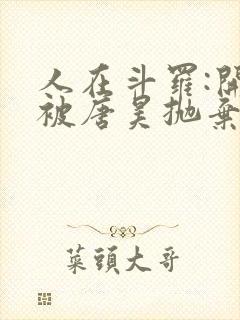 人在斗羅:開
被唐昊拋棄
菜頭大哥